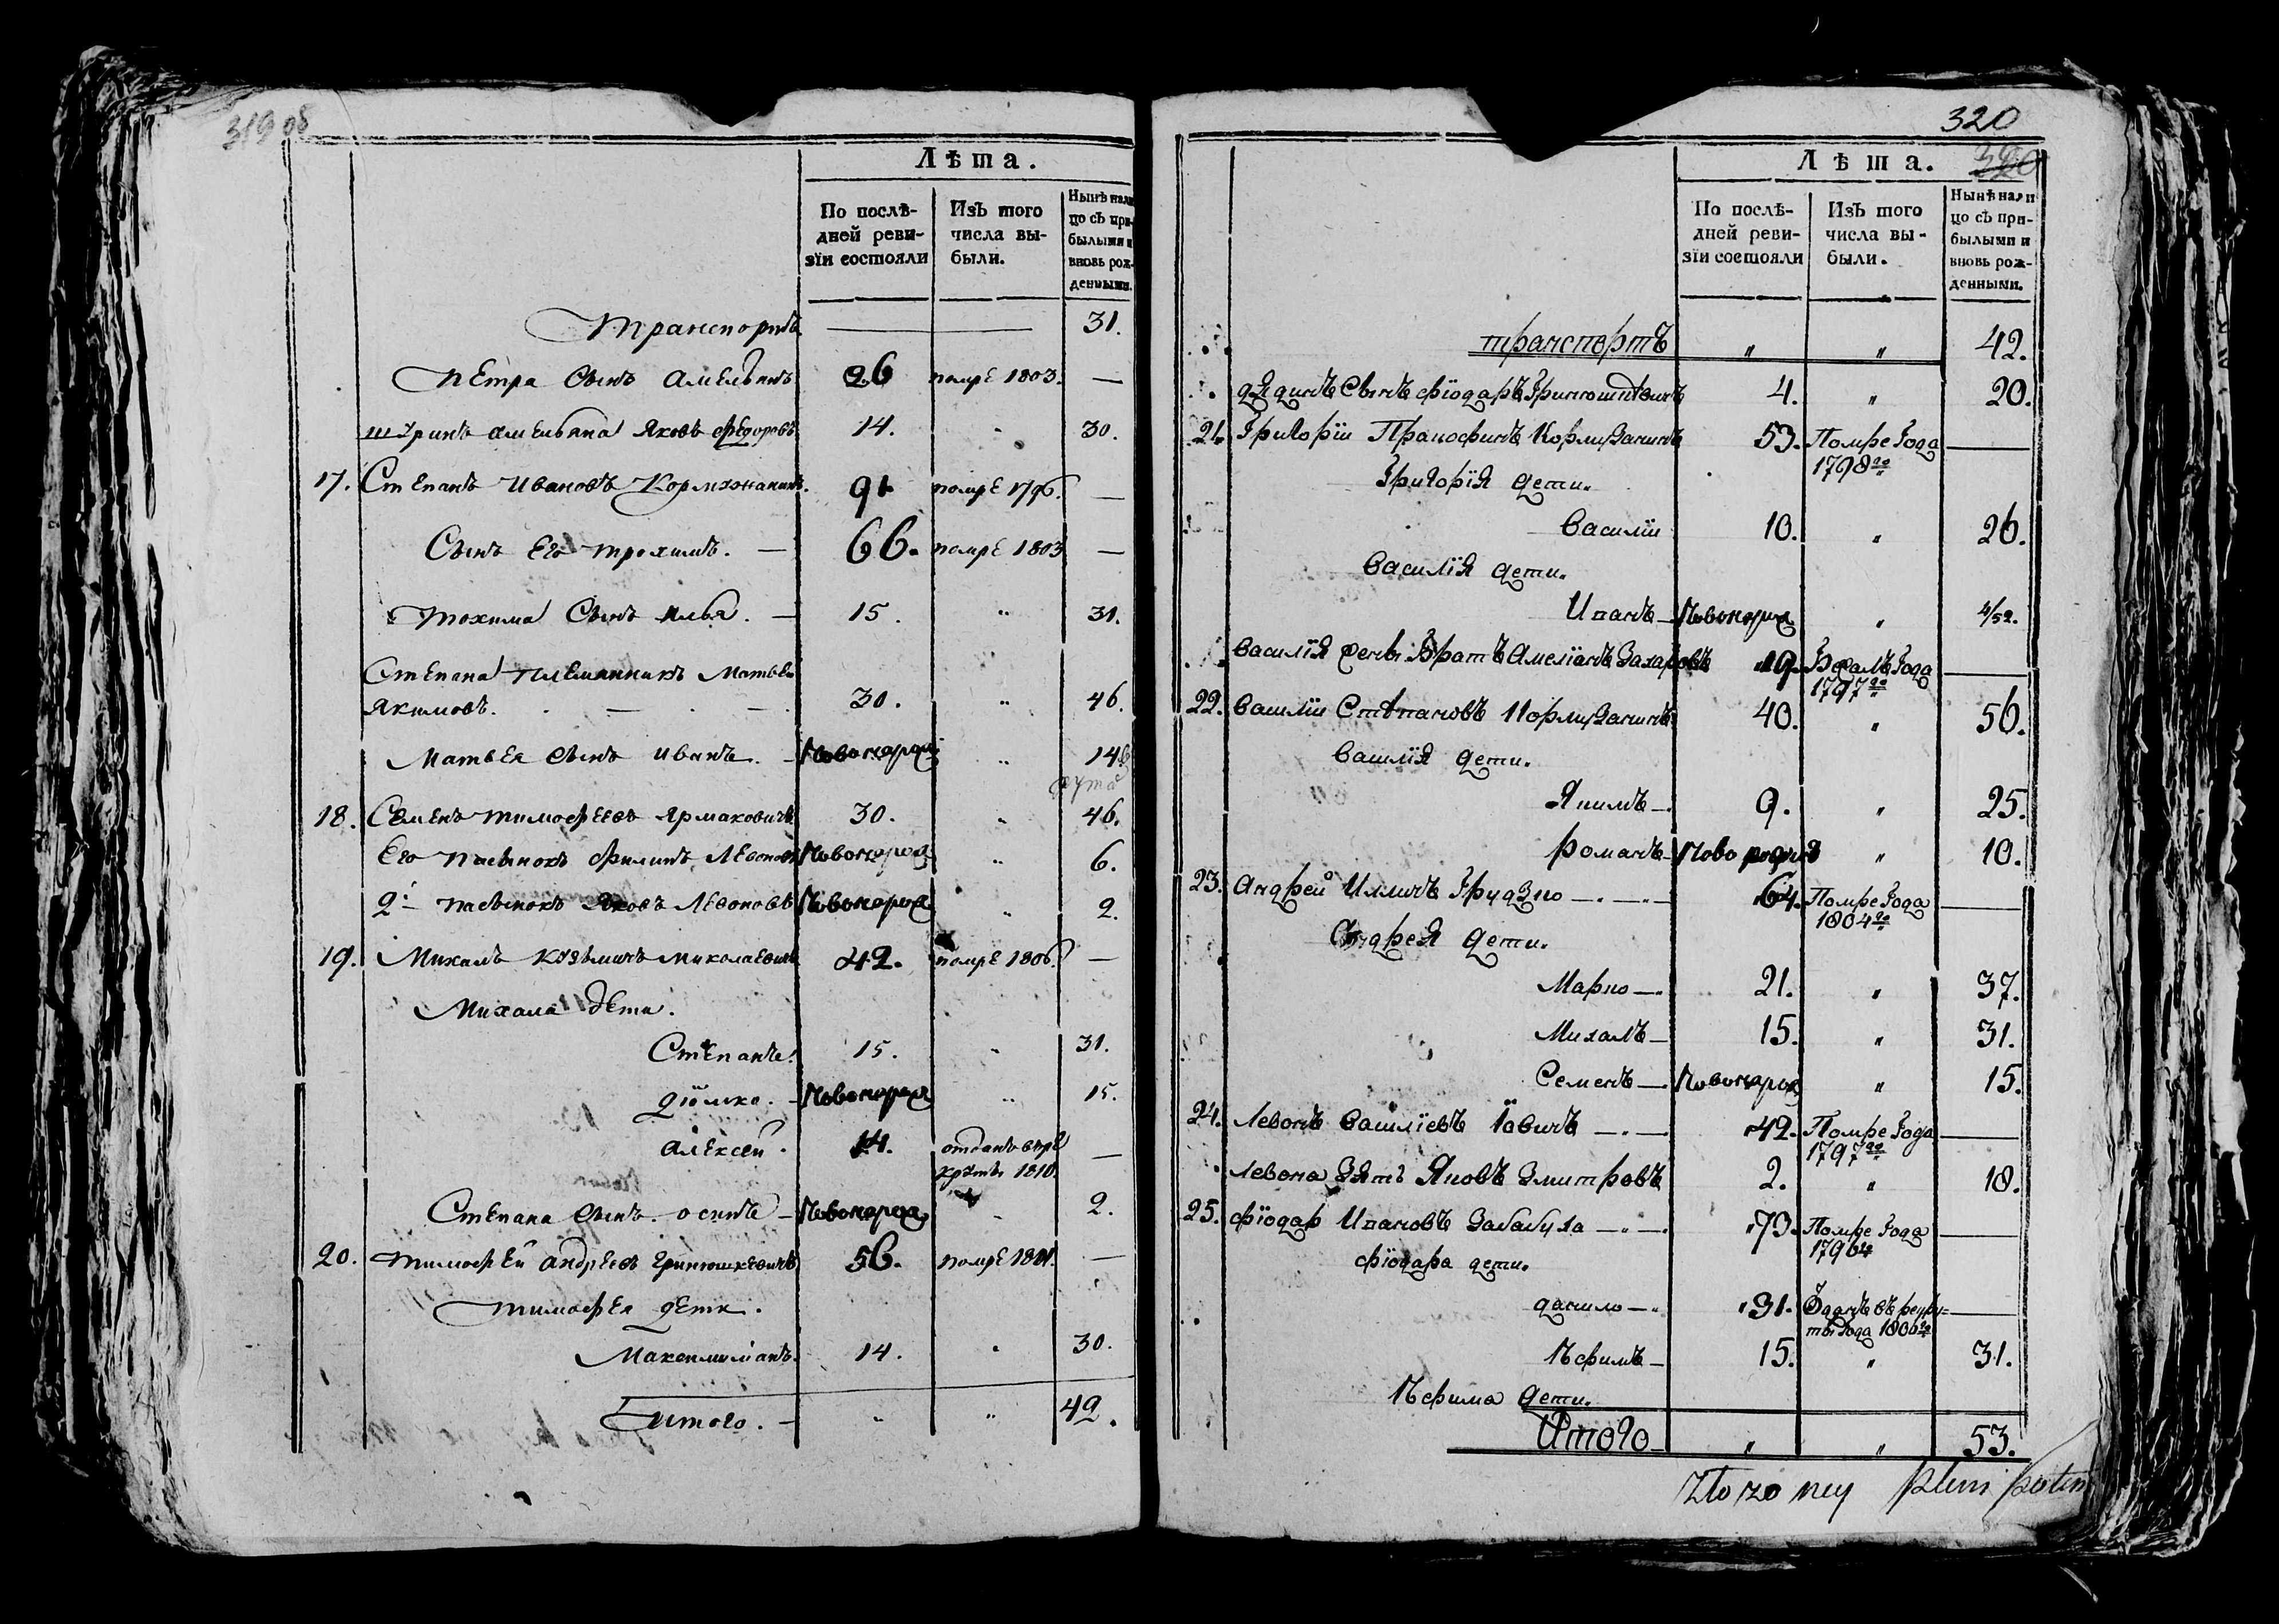 319 об
Лѣта.
По послѣ-
дней реви-
зїи состояли
Изъ того
числа вы-
были.
Нынѣ нали
цо съ при-
былыми и
вновь рож-
денными.
Транспортъ 31.
Петра Сынъ Амельянъ 26 помре 1803. —
шугринъ Амельяна Яковъ Федоровъ 14. " 30.
17. Степанъ Ивановъ Кормжанинъ. 91. помре 1796. —
Сынъ Его трохимъ. — 66. помре 1803 —
Трохима Сынъ илья. — 15. " 31.
Степана племянникъ Матвеи
Якимовъ. 30. " 46.
Матвея сынъ иванъ. — Новонарож " 14.
18. Семенъ тимофеевъ Ярмаковичъ 30. " 46.
Его пасынокъ филипъ Левоновъ Новонарож " 6.
2й пасынокъ Яковъ Левоновъ Новонарож " 2.
19. Михалъ Кузьмичъ миколаевичъ 42. помре 1806. —
Михала дети.
Степанъ. 15. " 31.
дiомко. — Новонарож " 15.
Алексеи. 14. отданъ в ре
круты 1810. —
Степана сынъ. осипъ — Новонарож " 2.
20. тимофеи андреевъ гринюшкевичъ 56. помре 1801. —
тимофея дети.
Максимилианъ. 14. " 30.
итого. — " " 42.
320
320
Лѣта.
По послѣ-
дней реви-
зїи состояли
Изъ того
числа вы-
были.
Нынѣ нали
цо съ при-
былыми и
вновь рож-
денными.
транспортъ " " 42.
Сынъ фїодаръ 4. " 20.
21. Григорїи Кормжанинъ 53. Помре Года —
1798го
Григорїя дети.
Василїи 10. " 26.
Василїя дети.
Иванъ — Новонарож " 4/52.
Василїя Братъ Амелїанъ Захаровъ 19. Бежалъ Года —
1797го
22. Василїи Степановъ Кормжанинъ 40. " 56.
Василїя дети.
Якимъ — 9. " 25.
романъ — Ново рожд " 10.
23. Андреи Иллинъ Грудзко — 64. Помре Года —
1804го
Андрея дети.
Марко — 21. " 37.
Михалъ — 15. " 31.
Семенъ — Новонарож " 15.
24. Левонъ Василїевъ — 42. Помре Года —
1797го
Левона Зять Яковъ Змитровъ 2. " 18.
25. фїодар Ивановъ Забабуха — 73. Помре Года —
1796
фїодара дети.
данило — 31. Зданъ въ рекру= —
ты Года 1806го
Ъефимъ — 15. " 31.
Ъефима дети.
Итого — " " 53.